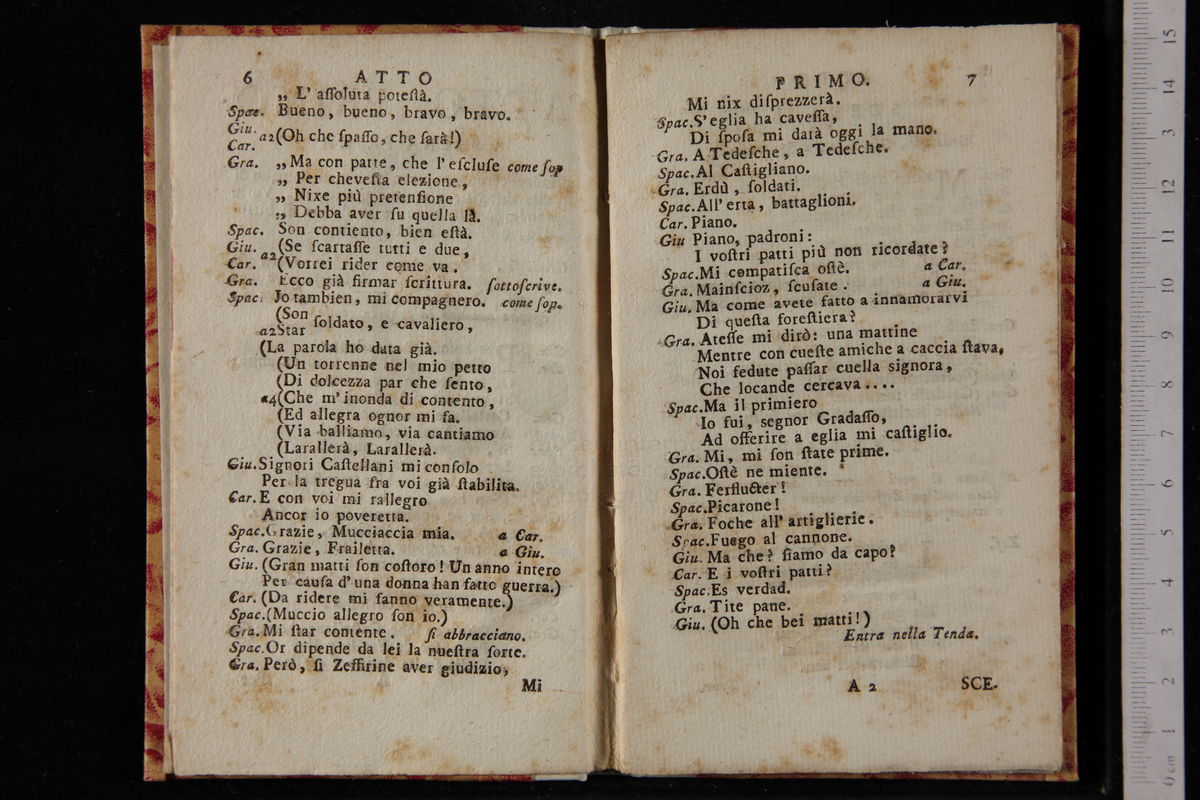 6 ATTO
„ L' aſſoluta poteſtà.
Spac. Bueno, bueno, bravo, bravo.
Giu.
Car. a2 (Oh che ſpaſſo, che ſarà!)
Gra. „ Ma con patte, che l' eſcluſe come ſop
„ Per cheveſta elezione,
„ Nixe più pretenſione
„ Debba aver ſu quella là.
Spac. Son contiento, bien eſtà.
Giu. a2 (Se ſcartaſſe tutti e due,
Car. (Vorrei rider come va.
Gra. Ecco già firmar ſcrittura. ſottoſcrive.
Spac. Jo tambien, mi compagnero. come ſop.
(Son
a2 Star ſoldato, e cavaliero,
(La parola ho data già.
(Un torrenne nel mio petto
(Di dolcezza par che ſento,
a4 (Che m' inonda di contento,
(Ed allegra ognor mi fa.
(Via balliamo, via cantiamo
(Larallerà, Larallerà.
Giu. Signori Caſtellani mi conſolo
Per la tregua fra voi già ſtabilita.
Car. E con voi mi rallegro
Ancor io poveretta.
Spac. Grazie, Mucciaccia mia. a Car.
Gra. Grazie, Frailetta. a Giu.
Giu. (Gran matti ſon coſtoro! Un anno intero
Per cauſa d' una donna han fatto guerra.)
Car. (Da ridere mi fanno veramente.)
Spac. (Muccio allegro ſon io.)
Gra. Mi ſtar contente. ſi abbracciano.
Spac. Or dipende da lei la nueſtra ſorte.
Gra. Però, ſi Zeffirine aver giudizio,
Mi
PRIMO. 7
Mi nix diſprezzerà.
Spac. S' eglia ha caveſſa,
Di ſpoſa mi darà oggi la mano.
Gra. A Tedeſche, a Tedeſche.
Spac. Al Caſtigliano.
Gra. Erdù, ſoldati.
Spac. All' erta, battaglioni.
Car. Piano.
Giu Piano, padroni:
I voſtri patti più non ricordate?
Spac. Mi compatiſca oſtè. a Car.
Gra. Mainſcioz, ſcuſate. a Giu.
Giu. Ma come avete fatto a innamorarvi
Di queſta foreſtiera?
Gra. Ateſſe mi dirò: una mattine
Mentre con cueſte amiche a caccia ſtava,
Noi ſedute paſſar cuella ſignora,
Che locande cercava....
Spac. Ma il primiero
Io fui, segnor Gradaſſo,
Ad offerire a eglia mi caſtiglio.
Gra. Mi, mi ſon ſtate prime.
Spac. Oſtè ne miente.
Gra. Ferflucter!
Spac. Picarone!
Gra. Foche all' artiglierie.
Spac. Fuego al cannone.
Giu. Ma che? ſiamo da capo?
Car. E i voſtri patti?
Spac. Es verdad.
Gra. Tite pane.
Giu. (Oh che bei matti!)
Entra nella Tenda.
A 2 SCE-
15
14
13
12
11
10
9
8
7
6
5
4
3
2
1
0 cm